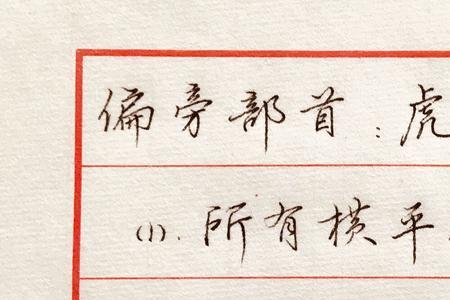 偏旁部首:虎
(1).所有横平